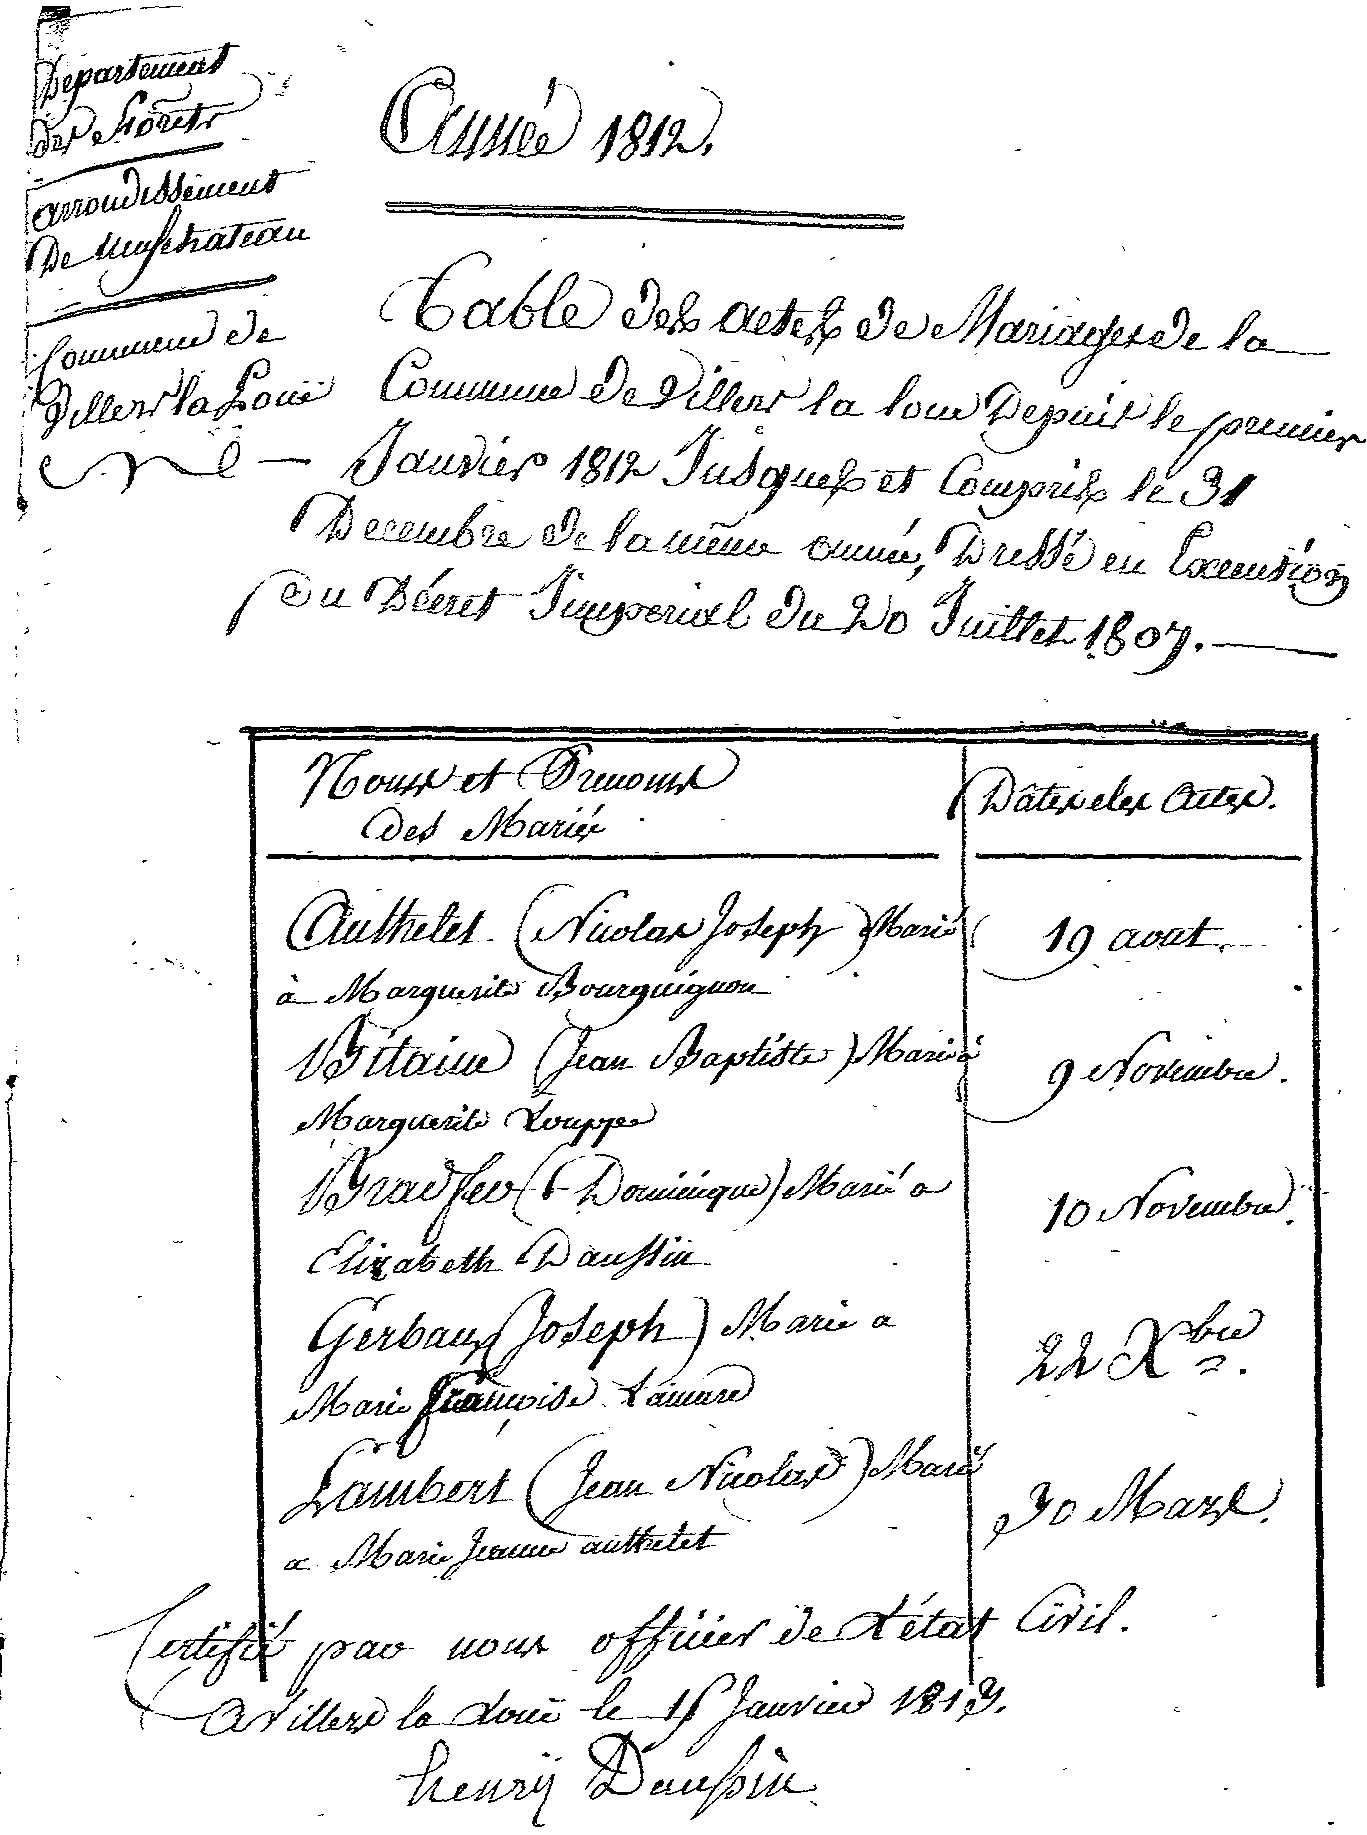 Departement
des Forêts
arrondissement
De neufchateau
Commune de
Villers la Loüe
Année 1812.
Table des actes de Mariages de la
Commune de Villers la loue Depuis le premier
Janvier 1812 Jusques et Compris le 31
Decembre de la même année, Dressé en Execution
du Décret Imperial du 20 Juillet 1807.
Noms et Prenoms
des Mariés
Dates des actes.
Authelet (Nicolas Joseph) Marié
à Marguerite Bourguignon
19 aout.
Bitaine (Jean Baptiste) Marié à
Marguerite Louppe
9 Novembre.
Bradfer (Dominique) Marié a
Elizabeth Daussin
10 Novembre.
Gerbaux (Joseph) Marie a
Marie françoise Lamare
22 Xbre.
Lambert (Jean Nicolas) Marié
a Marie Jeanne authelet
30 Mars.
Certifié par nous officier de L'état Civil.
A Villers la Loüe le 15 Janvier 1813.
henrÿ Daussin